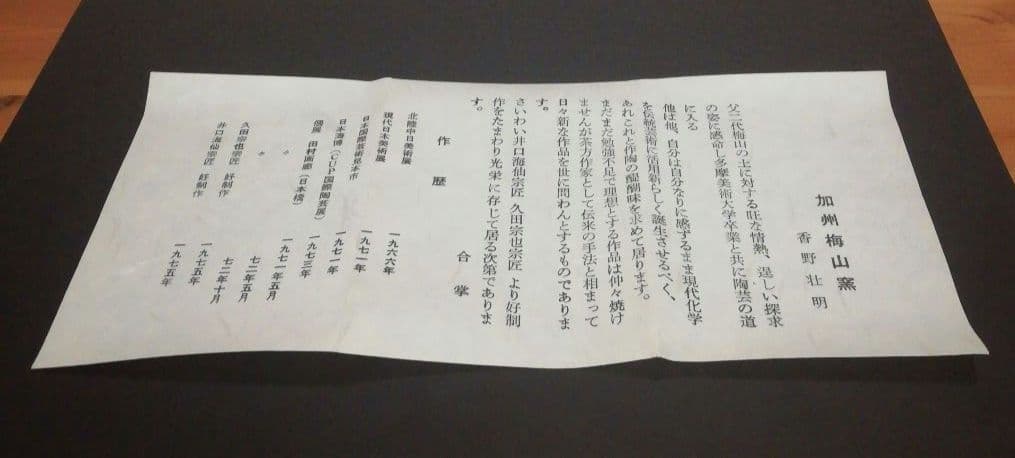 加州梅山窯
香野壮明
父二代梅山の土に対する旺な情熱、逞しい探求
の姿に感命し多摩美術大学卒業と共に陶芸の道
に入る
他は他、自分は自分なりに感ずるまま現代化学
を伝統芸術に活用新らしく誕生させるべく、
あれこれと作陶の醍醐味を求めて居ります。
まだまだ勉強不足で理想とする作品は仲々焼け
ませんが茶方作家として伝来の手法と相まって
日々新な作品を世に問わんとするものでありま
す。
さいわい井口海仙宗匠 久田宗也宗匠 より好制
作をたまわり光栄に存じて居る次第でありま
す。
合掌
作歴
北陸中日美術展 一九六六年
現代日本美術展 一九七一年
日本国際芸術見本市 一九七一年
日本海博(CUP国際陶芸展) 一九七三年
個展 田村画廊(日本橋) 一九七一年五月
〃 〃 七二年五月
〃 七二年十月
久田宗也宗匠 好制作 一九七五年
井口海仙宗匠 好制作 一九七五年